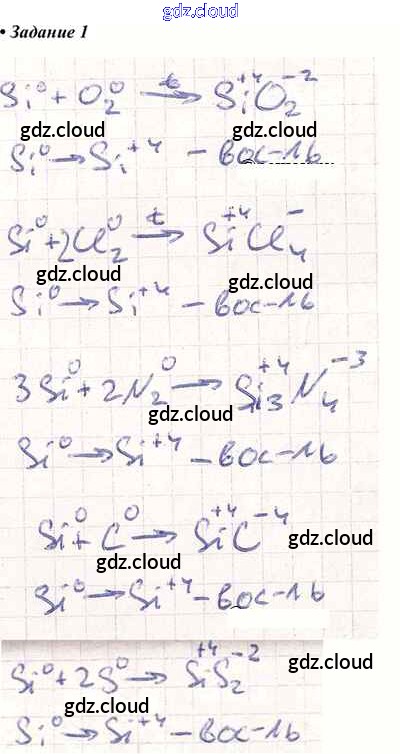 gdz.cloud
• Задание 1
Si⁰ + O₂⁰ →ᵗ Si⁺⁴O₂⁻²
gdz.cloud gdz.cloud
Si⁰ → Si⁺⁴ – вос-ль
Si⁰ + 2Cl₂⁰ →ᵗ Si⁺⁴Cl₄⁻
gdz.cloud gdz.cloud
Si⁰ → Si⁺⁴ – вос-ль
3Si⁰ + 2N₂⁰ → Si₃⁺⁴N₄⁻³
gdz.cloud gdz.cloud
Si⁰ → Si⁺⁴ – вос-ль
Si⁰ + C⁰ → Si⁺⁴C⁻⁴
gdz.cloud
gdz.cloud
Si⁰ → Si⁺⁴ – вос-ль
Si⁰ + 2S⁰ → Si⁺⁴S₂⁻²
gdz.cloud
gdz.cloud
Si⁰ → Si⁺⁴ – вос-ль